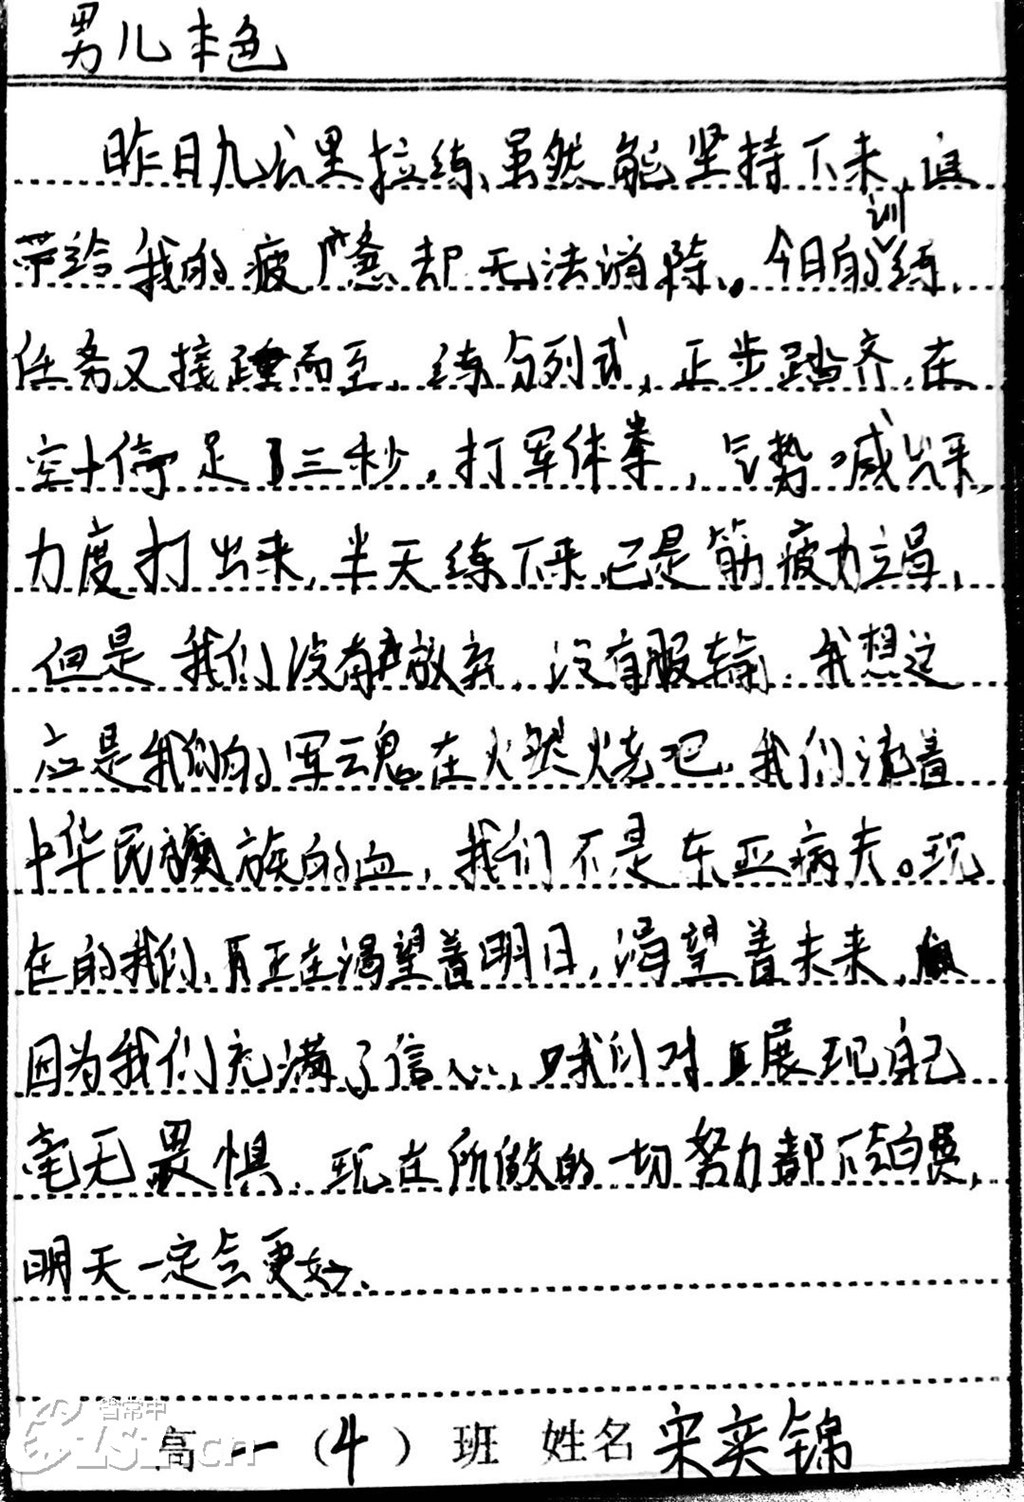 男儿本色
昨日九公里拉练、虽然能坚持下来,但
带给我的疲惫却无法消除。今日的训练
任务又接踵而至,练分列式,正步踏齐,在
空中停足了三秒,打军体拳,气势喊出来,
力度打出来,半天练下来,已是筋疲力竭,
但是我们没有放弃,没有服输,我想这
应是我们的军魂在燃烧吧,我们流着
中华民族的血,我们不是东亚病夫。现
在的我们,正在渴望着明日,渴望着未来,
因为我们充满了信心,我们对展现自己
毫无畏惧,现在所做的一切努力都不会白费,
明天一定会更好、
省常中
高一(4)班 姓名 宋奕锦